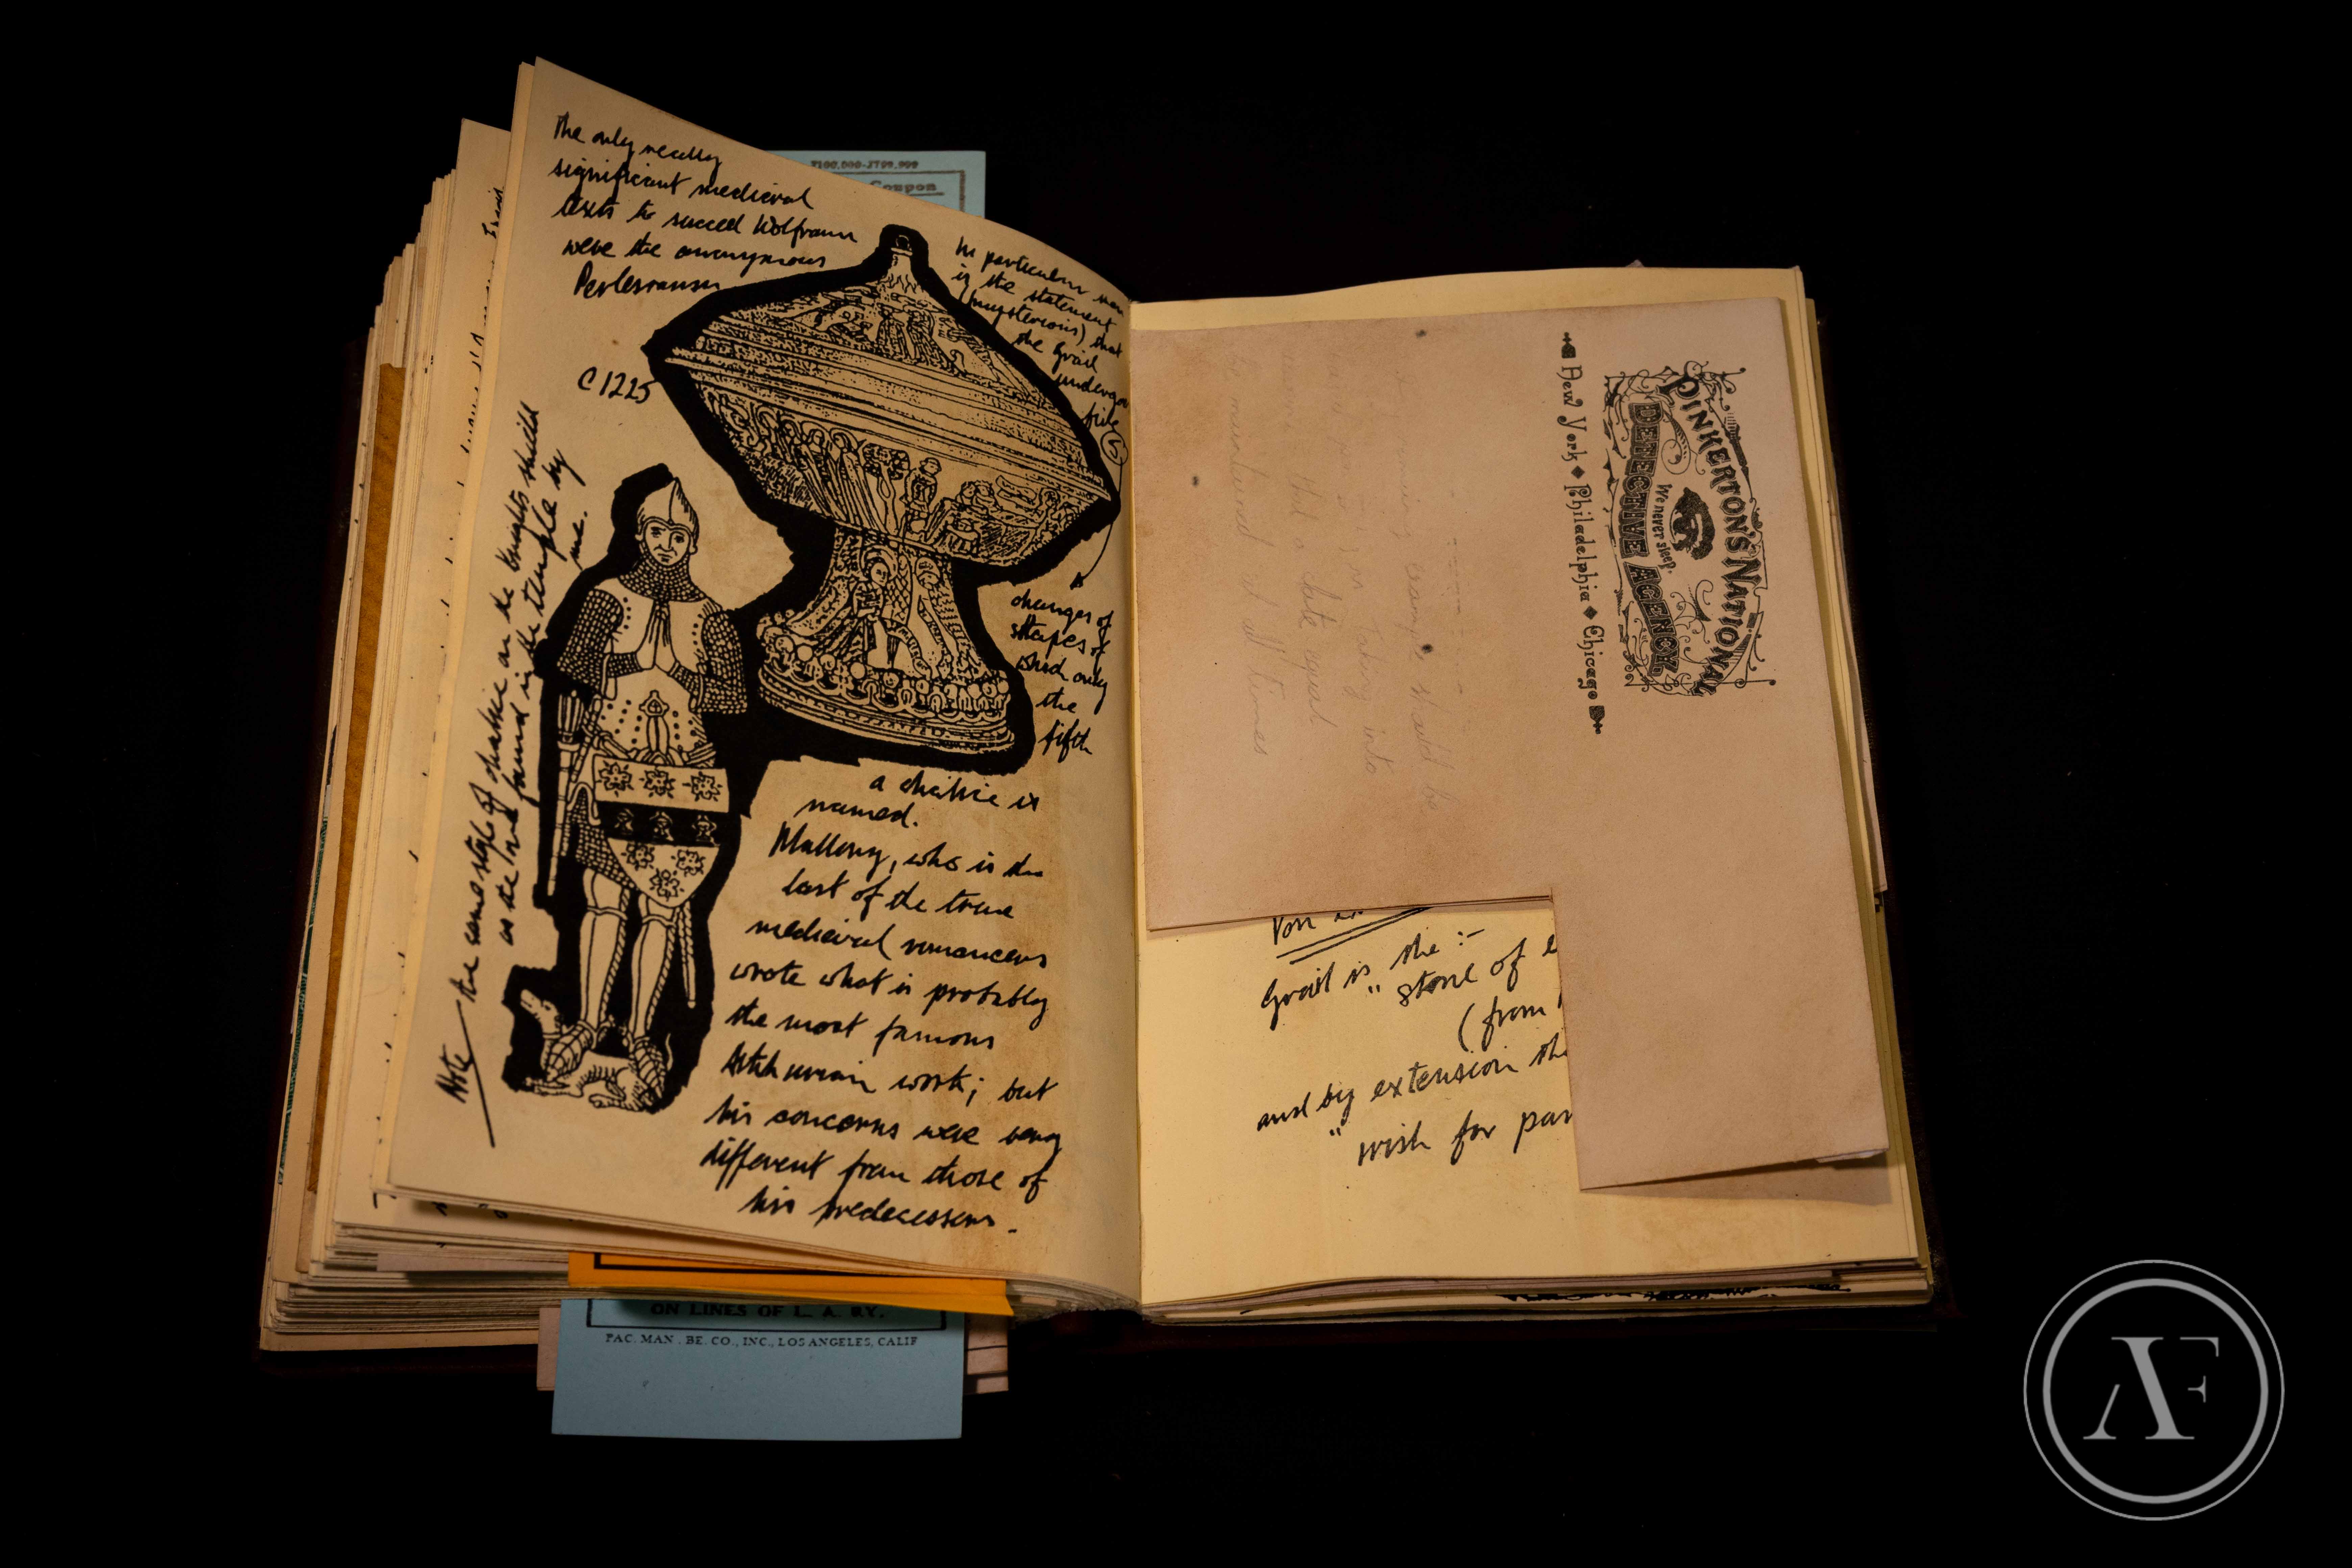 The only really
significant medieval
texts to succeed Wolfram
were the anonymous
Perlesvaus
C 1225
In particular
is the statement
(mysterious) that
the Grail
undergo
five
5
changes of
shapes of
which only
the
fifth
a chalice is
named.
Mallory, who is the
last of the true
medieval romancers
wrote what is probably
the most famous
Arthurian work; but
his concerns were very
different from those of
his predecessors.
Note the same style of chalice on the knights shield
as the found in the temple by
me.
7100,000-J799,999
Coupon
ON LINES OF L. A. RY.
PAC. MAN. BE. CO., INC., LOS ANGELES, CALIF
PINKERTON'S NATIONAL
We never sleep.
DETECTIVE AGENCY
New York ◆ Philadelphia ◆ Chicago
should be
into
that a state equal
be maintained at all times
Von
Grail is the :-
" stone of
(from
and by extension the
" wish for
AF